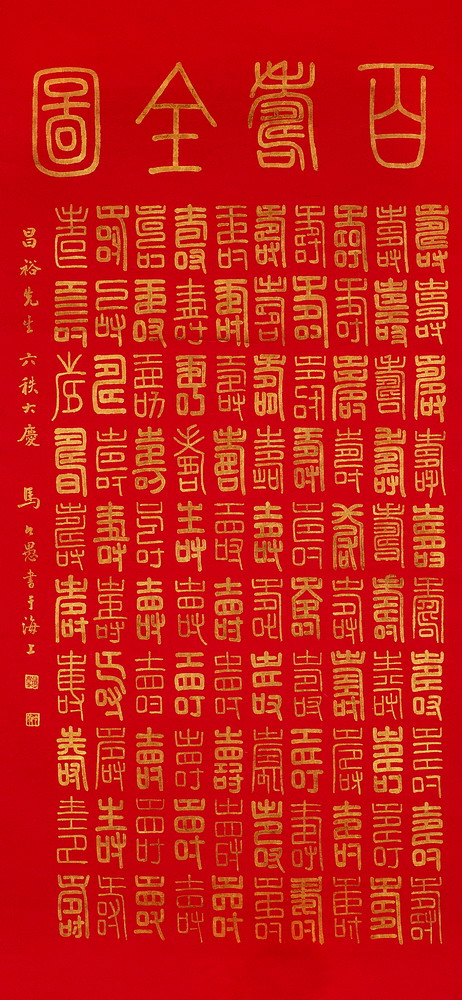 百壽全圖
壽壽壽壽壽壽壽壽壽壽
壽壽壽壽壽壽壽壽壽壽
壽壽壽壽壽壽壽壽壽壽
壽壽壽壽壽壽壽壽壽壽
壽壽壽壽壽壽壽壽壽壽
壽壽壽壽壽壽壽壽壽壽
壽壽壽壽壽壽壽壽壽壽
壽壽壽壽壽壽壽壽壽壽
壽壽壽壽壽壽壽壽壽壽
壽壽壽壽壽壽壽壽壽壽
昌裕先生六秩大慶 馬公愚書于海上